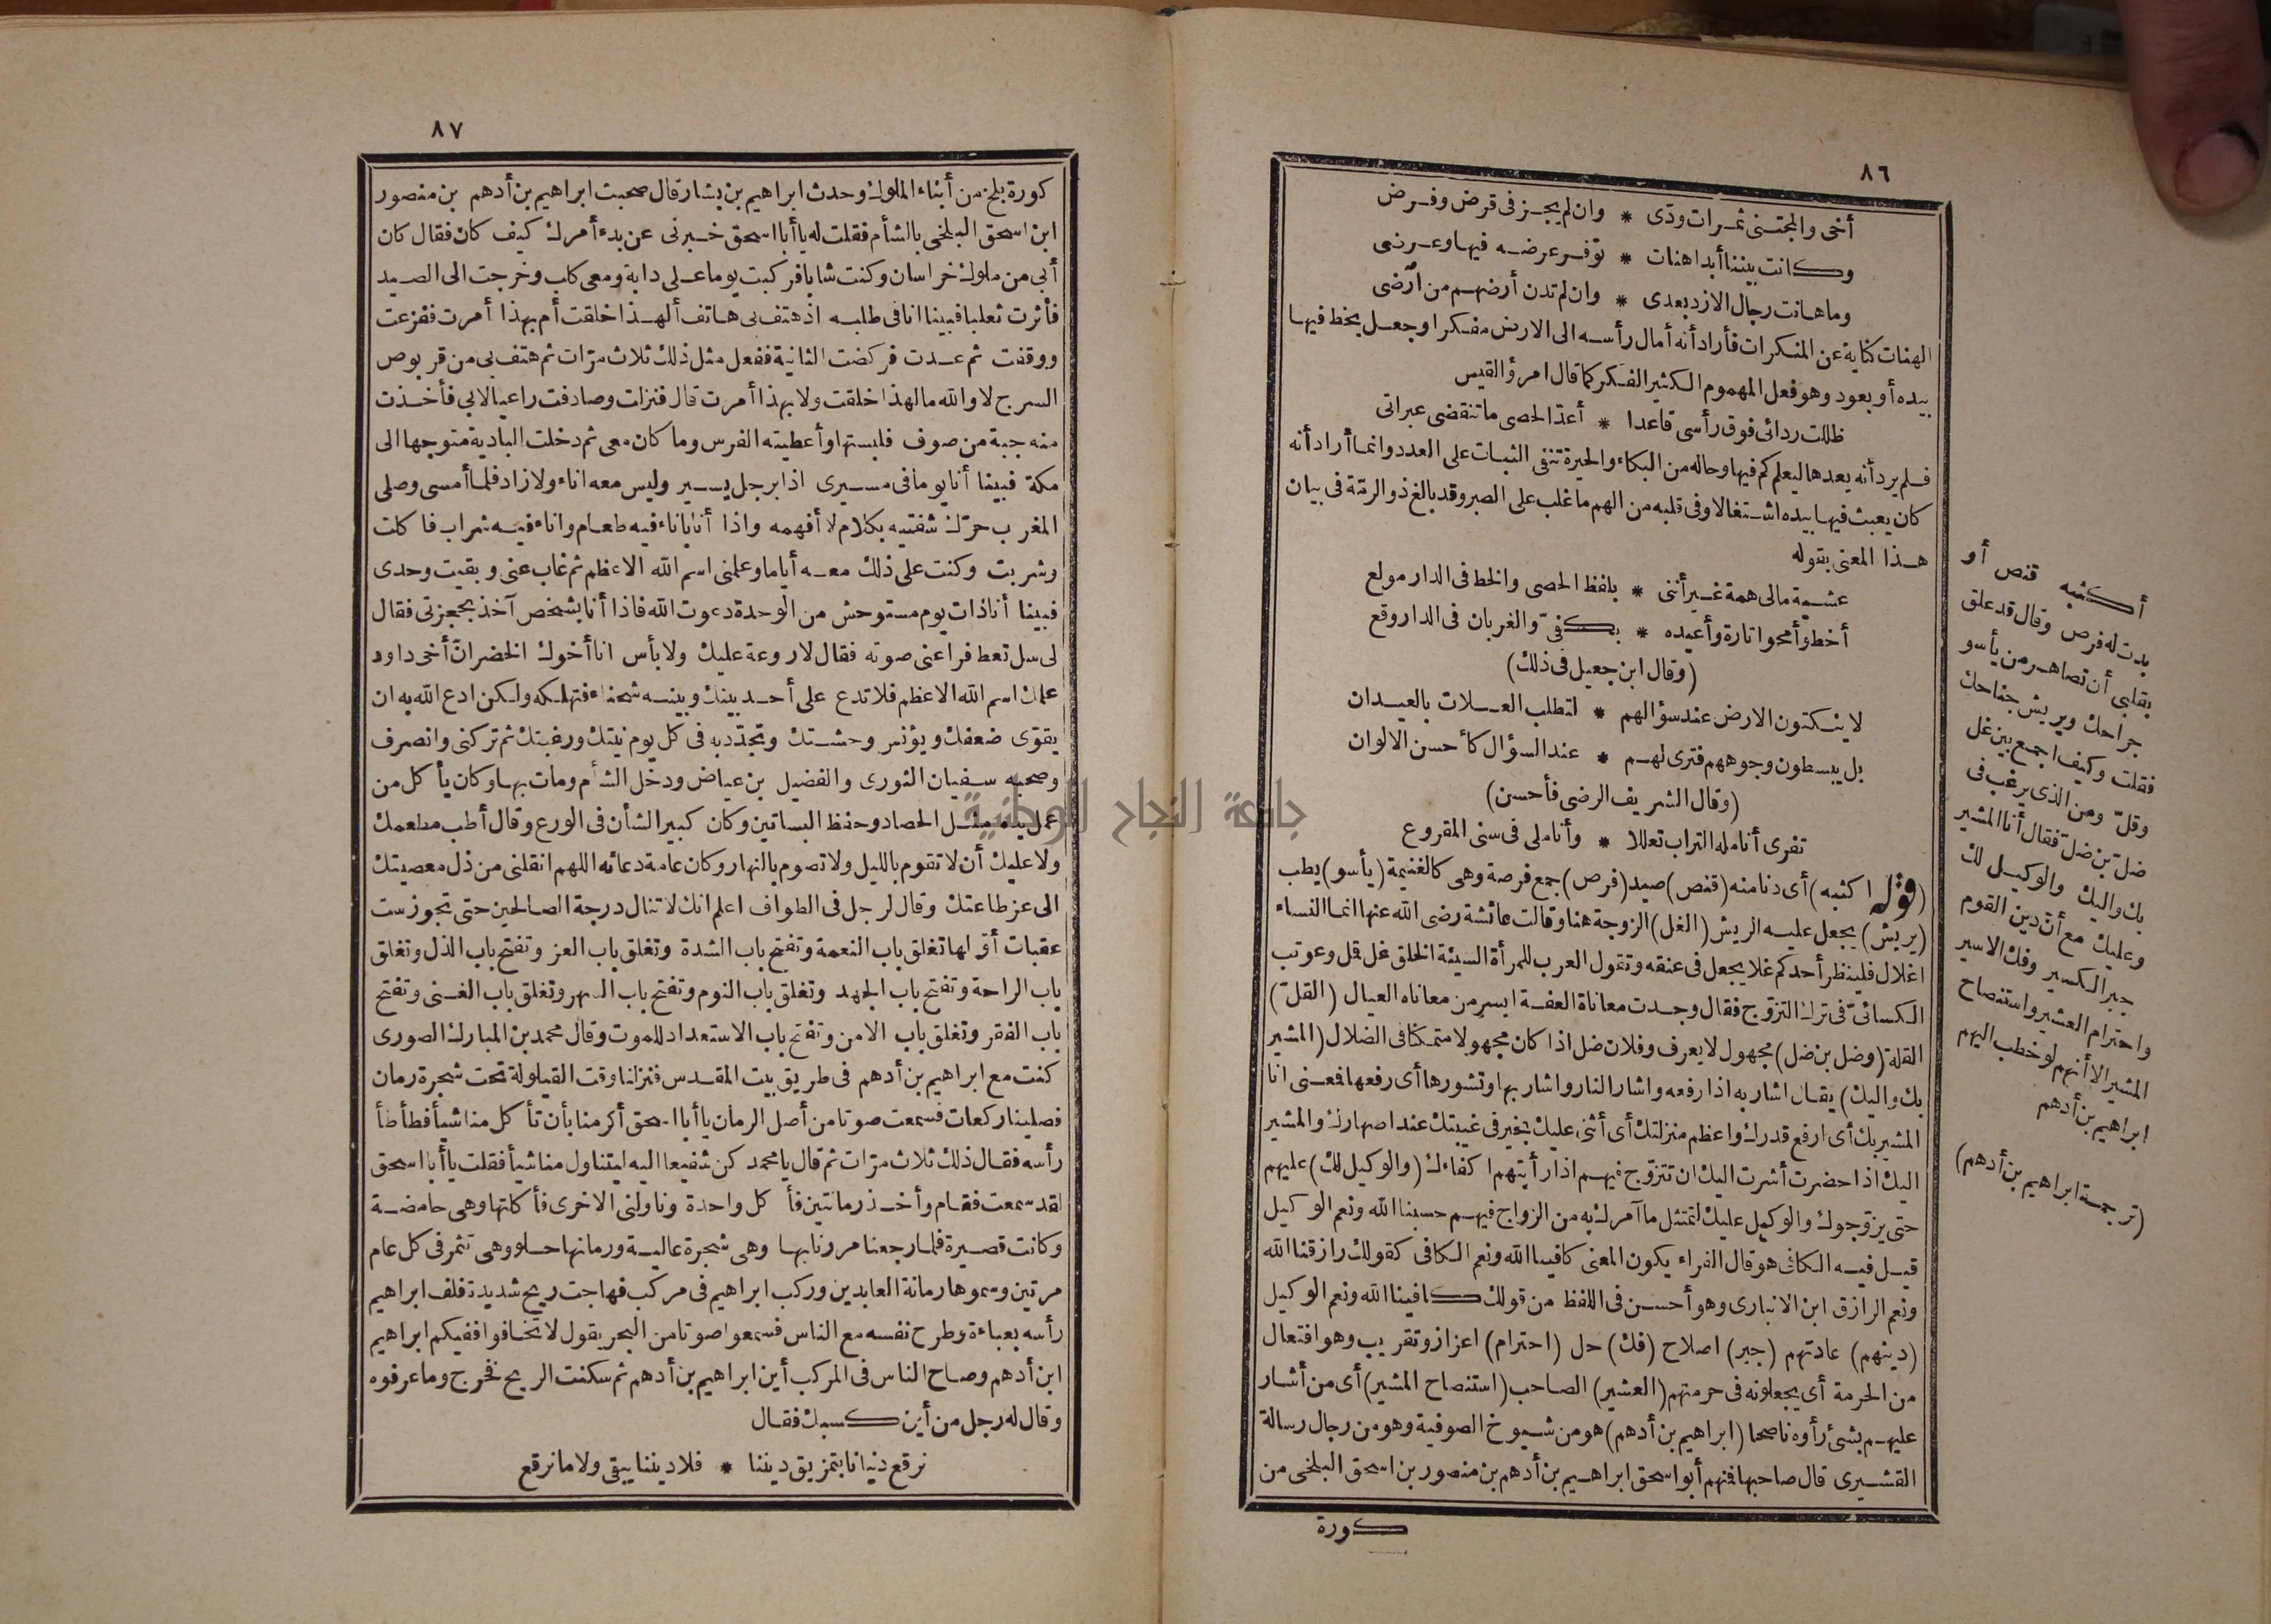 ٨٦
أخى والمجتنى ثمرات ودّى * وان لم يجز فى قرض وفرض
وكانت بيننا أبدا هنات * توفر عرضه فيها وعرضى
وما هانت رجال الازد بعدى * وان لم تدن أرضهم من أرضى
الهنات كناية عن المنكرات فأراد أنه أمال رأسه الى الارض مفكرا وجعل يخط فيها
بيده أو بعود وهو فعل المهموم الكثير الفكر كما قال امرؤ القيس
ظللت ردائى فوق رأسى قاعدا * أعدّ الحصى ما تنقضى عبراتى
فلم يرد أنه يعدها ليعلم كم فيها وحاله من البكاء والحيرة تنفى الثبات على العدد وانما أراد أنه
كان يعبث فيها بيده اشتغالا وفى قلبه من الهم ما غلب على الصبر وقد بالغ ذو الرمّة فى بيان
هذا المعنى بقوله
عشية مالى همة غير أننى * بلفظ الحصى والخط فى الدار مولع
أخط وأمحوا تارة وأعيده * بكفىّ والغربان فى الدار وقع
(وقال ابن جعيل فى ذلك)
لا ينكتون الارض عند سؤالهم * لتطلب العلات بالعيدان
بل يبسطون وجوههم فترى لهم * عند السؤال كأحسن الالوان
(وقال الشريف الرضى فأحسن)
تفرى أنامله التراب تعللا * وأناملى فى سنى المقروع
(قوله اكثبه) أى دنا منه (قنص) صيد (فرص) جمع فرصة وهى كالغنيمة (يأسو) يطب
(يريش) يجعل عليه الريش (الغل) الزوجة هنا وقالت عائشة رضى الله عنها انما النساء
اغلال فلينظر أحدكم غلا يجعل فى عنقه وتقول العرب للمرأة السيئة الخلق غل قمل وعوتب
الكسائىّ فى ترك التزوّج فقال وجدت معاناة العفة ايسر من معاناه العيال (القلّ)
القلة (وضل بن ضل) مجهول لا يعرف وفلان ضل اذا كان مجهولا متمكنا فى الضلال (المشير
بك واليك) يقال اشار به اذا رفعه واشار النار واشار بها وتشورها أى رفعها فعنى انا
المشير بك أى ارفع قدرك واعظم منزلتك أى أثنى عليك بخير فى غيبتك عند اصهارك والمشير
اليك اذا حضرت أشرت اليك ان تتزوّج فيهم اذا رأيتهم اكفاءك (والوكيل لك) عليهم
حتى يزوّجوك والوكيل عليك لتمتثل ما آمرك به من الزواج فيهم حسبنا الله ونعم الوكيل
قيل فيه الكافى هو قال الفراء يكون المعنى كافينا الله ونعم الكافى كقولك رازقنا الله
ونعم الرازق ابن الانبارى وهو أحسن فى اللفظ من قولك كافينا الله ونعم الوكيل
(دينهم) عادتهم (جبر) اصلاح (فك) حل (احترام) اعزاز وتقريب وهو افتعال
من الحرمة أى يجعلونه فى حرمتهم (العشير) الصاحب (استنصاح المشير) أى من أشار
عليهم بشئ رأوه ناصحا (ابراهيم بن أدهم) هو من شيوخ الصوفية وهو من رجال رسالة
القشيرى قال صاحبها فمنهم أبو اسحق ابراهيم بن أدهم بن منصور بن اسحق البلخى من
كورة
أكثبه قنص أو
بدت له فرص وقال قد علق
بقلبى أن تصاهر من يأسو
جراحك ويريش جناحك
فقلت وكيف اجمع بين غل
وقلّ ومن الذى يرغب فى
ضلّ بن ضلّ فقال أنا المشير
بك واليك والوكيل لك
وعليك مع أنّ دين القوم
جبر الكسير وفك الاسير
واحترام العشير واستنصاح
المشير الا أنهم لو خطب اليهم
ابراهيم بن أدهم
(ترجمة ابراهيم بن أدهم)
٨٧
كورة بلخ من أبناء الملوك وحدث ابراهيم بن بشار قال صحبت ابراهيم بن أدهم بن منصور
ابن اسحق البلخى بالشأم فقلت له يا أبا اسحق خبرنى عن بدء أمرك كيف كان فقال كان
أبى من ملوك خراسان وكنت شابا فركبت يوما على دابة ومعى كلب وخرجت الى الصيد
فأثرت ثعلبا فبينا انا فى طلبه اذ هتف بى هاتف ألهذا خلقت أم بهذا أمرت ففزعت
ووقفت ثم عدت فركضت الثانية ففعل مثل ذلك ثلاث مرّات ثم هتف بى من قربوص
السرج لا والله ما لهذا خلقت ولا بهذا أمرت قال فنزلت وصادفت راعيا لابى فأخذت
منه جبة من صوف فلبستها وأعطيته الفرس وما كان معى ثم دخلت البادية متوجها الى
مكة فبينا أنا يوما فى مسيرى اذا برجل يسير وليس معه اناء ولا زاد فلما أمسى وصلى
المغرب حرّك شفتيه بكلام لا أفهمه واذا أنا باناء فيه طعام واناء فيه شراب فاكلت
وشربت وكنت على ذلك معه أياما وعلمنى اسم الله الاعظم ثم غاب عنى وبقيت وحدى
فبينا أنا ذات يوم مستوحش من الوحدة دعوت الله فاذا أنا بشخص آخذ بحجزتى فقال
لى سل تعط فراعنى صوته فقال لا روعة عليك ولا بأس انا أخوك الخضر انّ أخى داود
علمك اسم الله الاعظم فلا تدع على أحد بينك وبينه شحناء فتهلكه ولكن ادع الله به ان
يقوى ضعفك ويؤنس وحشتك وتجدّد به فى كل يوم نيتك ورغبتك ثم تركنى وانصرف
وصحبه سفيان الثورى والفضيل بن عياض ودخل الشأم ومات بها وكان يأكل من
عمل يده مثل الحصاد وحفظ البساتين وكان كبير الشأن فى الورع وقال أطب مطعمك
ولا عليك أن لا تقوم بالليل ولا تصوم بالنهار وكان عامة دعائه اللهم انقلنى من ذل معصيتك
الى عز طاعتك وقال لرجل فى الطواف اعلم انك لا تنال درجة الصالحين حتى تجوز ست
عقبات أوّلها تغلق باب النعمة وتفتح باب الشدة وتغلق باب العز وتفتح باب الذل وتغلق
باب الراحة وتفتح باب الجهد وتغلق باب النوم وتفتح باب السهر وتغلق باب الغنى وتفتح
باب الفقر وتغلق باب الامن وتفتح باب الاستعداد للموت وقال محمد بن المبارك الصورى
كنت مع ابراهيم بن أدهم فى طريق بيت المقدس فنزلنا وقت القيلولة تحت شجرة رمان
فصلينا ركعات فسمعت صوتا من أصل الرمان يا أبا اسحق أكرمنا بأن تأكل منا شيأ فطأطأ
رأسه فقال ذلك ثلاث مرّات ثم قال يا محمد كن شفيعا اليه ليتناول منا شيأ فقلت يا أبا اسحق
لقد سمعت فقام وأخذ رمانتين فأكل واحدة وناولنى الاخرى فأكلتها وهى حامضة
وكانت قصيرة فلما رجعنا مررنا بها وهى شجرة عالية ورمانها حلو وهى تثمر فى كل عام
مرتين وسموها رمانة العابدين وركب ابراهيم فى مركب فهاجت ريح شديدة فلف ابراهيم
رأسه بعباءة وطرح نفسه مع الناس فسمعوا صوتا من البحر يقول لا تخافوا ففيكم ابراهيم
ابن أدهم وصاح الناس فى المركب أين ابراهيم بن أدهم ثم سكنت الريح فخرج وما عرفوه
وقال له رجل من أين كسبك فقال
نرقع دنيانا بتمزيق ديننا * فلا ديننا يبقى ولا ما نرقع
جامعة النجاح الوطنية